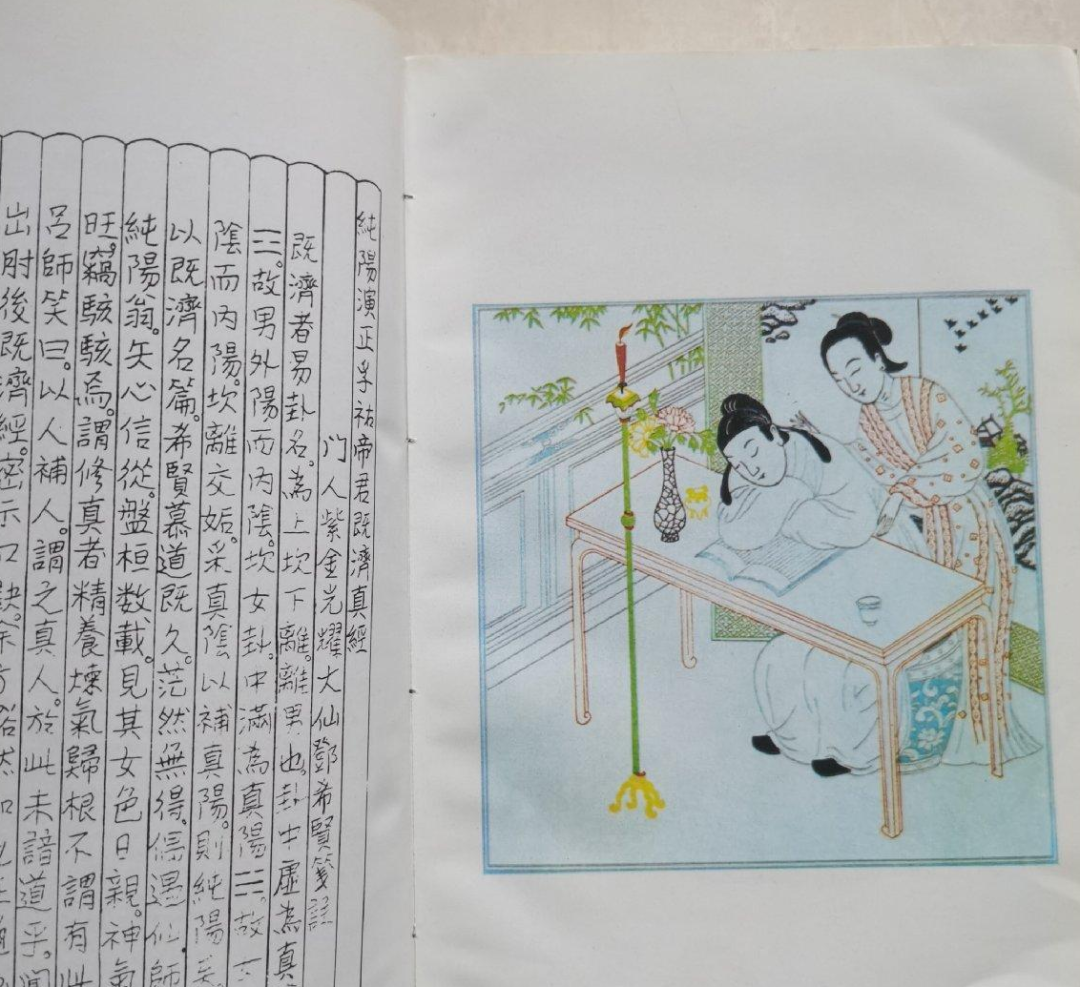 純陽演正孚祐帝君既濟真經
門人紫金光耀大仙鄧希賢箋註
既濟者易卦名。為上坎下離。離男也。卦中虛為真
☲。故男外陽而內陰。坎女卦。中滿為真陽☵。故
陰而內陽。坎離交姤。采真陰以補真陽。則純陽矣。
以既濟名篇。希賢慕道既久。茫然無得。偶遇仙師
純陽翁。矢心信從。盤桓数載。見其女色日親。神氣
旺。竊駭焉。謂修真者精養煉氣歸根不謂有此
呂師笑曰。以人補人。謂之真人。於此未諳道乎。間
出肘後既濟經。密示口訣。余方